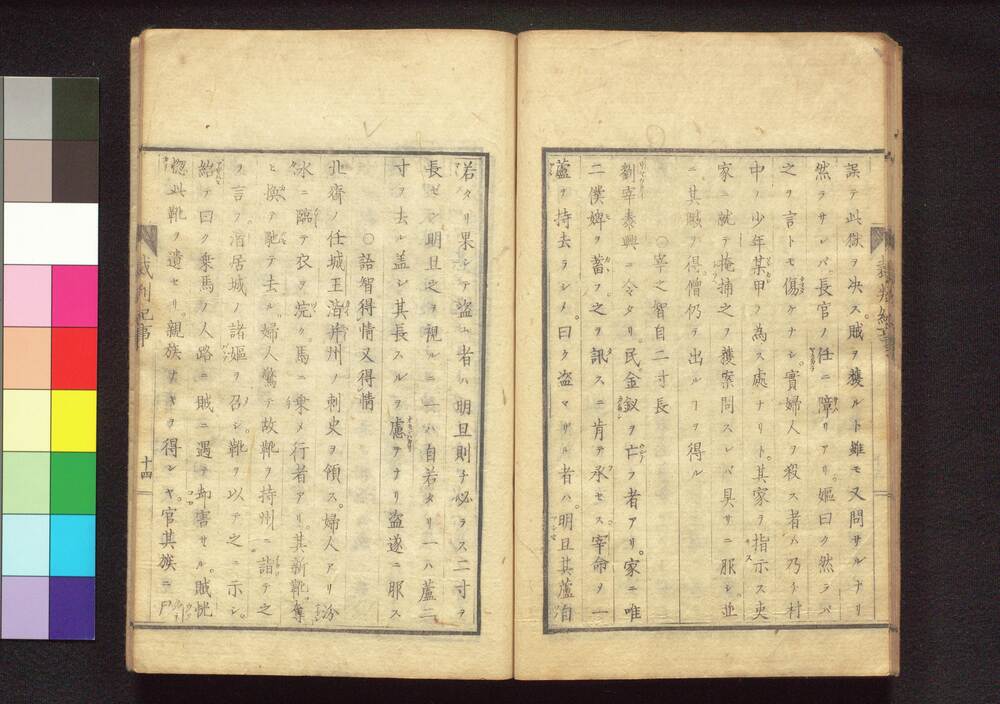 誤テ此獄ヲ決ス賊ヲ獲ルト雖モ又問サルナリ
然ラサレバ長官ノ任ニ障リアリ嫗曰ク然ラバ
之ヲ言トモ傷ケナシ實婦人ヲ殺ス者ハ乃チ村
中ノ少年某甲ノ為ス處ナリト其家ヲ指示ス吏
家ニ就テ掩捕之ヲ獲案問スレバ具サニ服シ並
ニ其賍ヲ得僧仍テ出ルヿヲ得ル
○宰之智自二寸長
劉宰泰興ニ令タリ民金釵ヲ亡フ者アリ家ニ唯
二僕婢ヲ蓄フ之ヲ訊スニ肯テ承セス宰命ヲ一
蘆ヲ持去ラシメ曰ク盗マザル者ハ明旦其蘆自
若タリ果シテ盗ム者ハ明旦則チ必ラス二寸ヲ
長ゼン明旦之ヲ視ルニ一ハ自若タリ一ハ蘆二
寸ヲ去ル盖シ其長スルヲ慮テナリ盗遂ニ服ス
○詒智得情又得情
北齊ノ任城王湝并州ノ刺史ヲ領ス婦人アリ汾
水ニ臨テ衣ヲ浣ク馬ニ乗メ行者アリ其新靴ヲ奪
ヒ換テ馳テ去ル婦人驚テ故靴ヲ持州ニ詣テ之
ヲ言フ湝居城ノ諸嫗ヲ召シ靴ヲ以テ之ニ示シ
紿テ曰ク乗馬ノ人路ニ賊ニ遇テ却害サル賊恍
惚此靴ヲ遺セリ親族ナキヲ得ンヤ官其族ニ
裁判紀事
十四